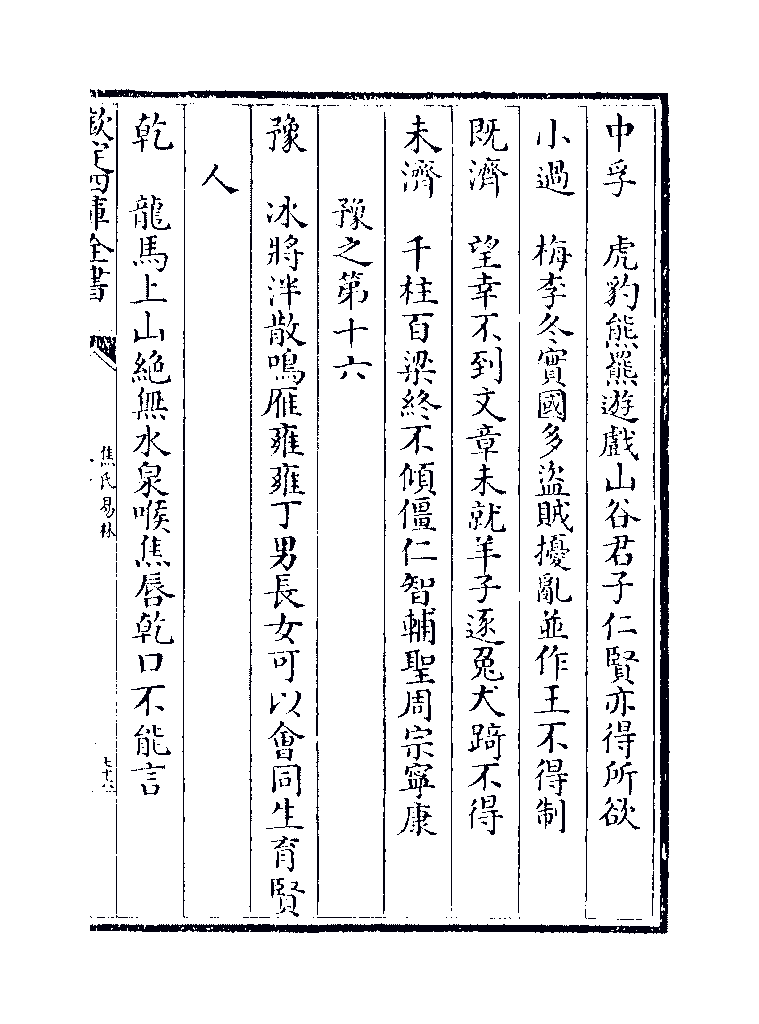 中孚　虎豹熊羆遊戲山谷君子仁賢亦得所欲
小過　梅李冬實國多盜賊擾亂並作王不得制
既濟　望幸不到文章未就羊子逐兔犬踦不得
未濟　千柱百梁終不傾僵仁智輔聖周宗寧康
豫之第十六
豫　冰將泮散鳴雁雍雍丁男長女可以會同生育賢
人
乾　龍馬上山絶無水泉喉焦唇乾口不能言
欽定四庫全書
焦氏易林